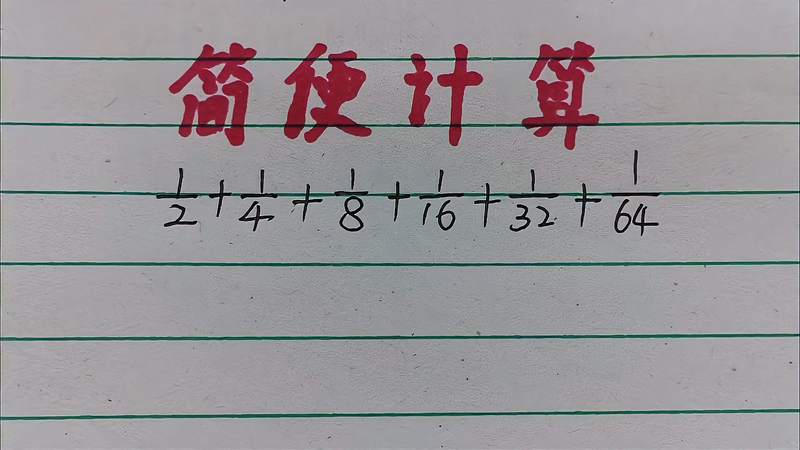 简便计算
1/2 + 1/4 + 1/8 + 1/16 + 1/32 + 1/64